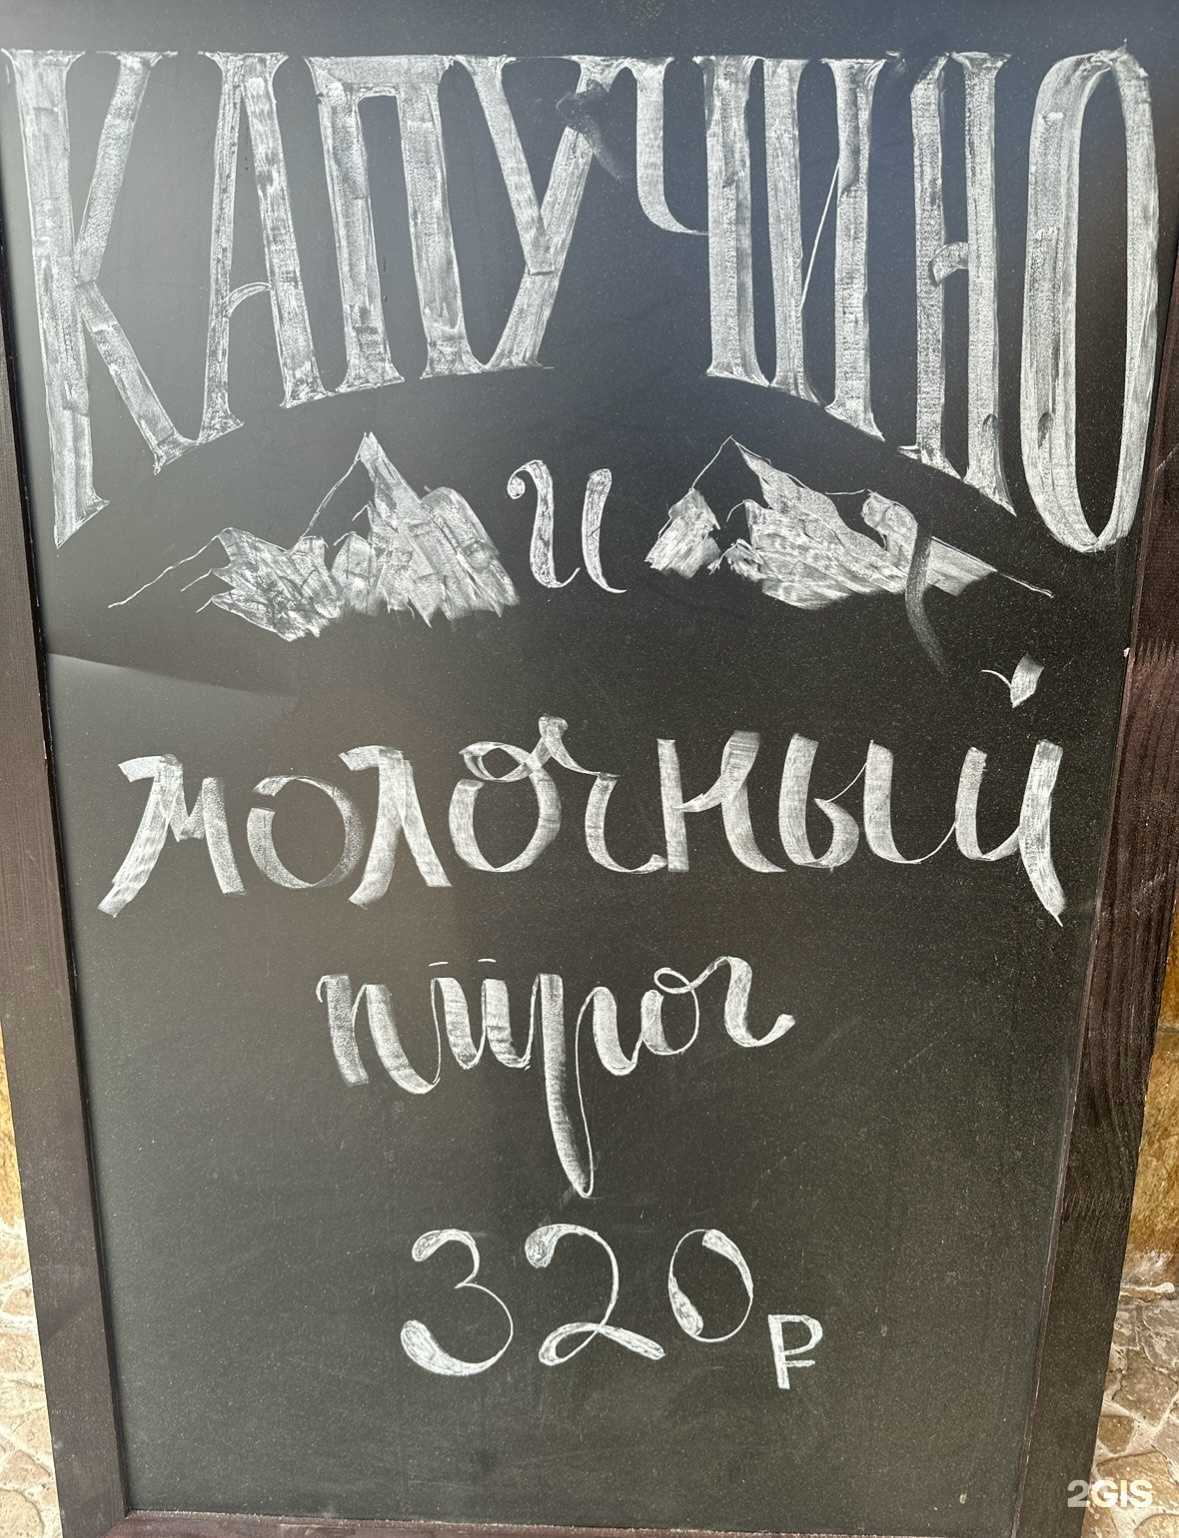 КАПУЧИНО
и
молочный
пирог
320₽
2GIS